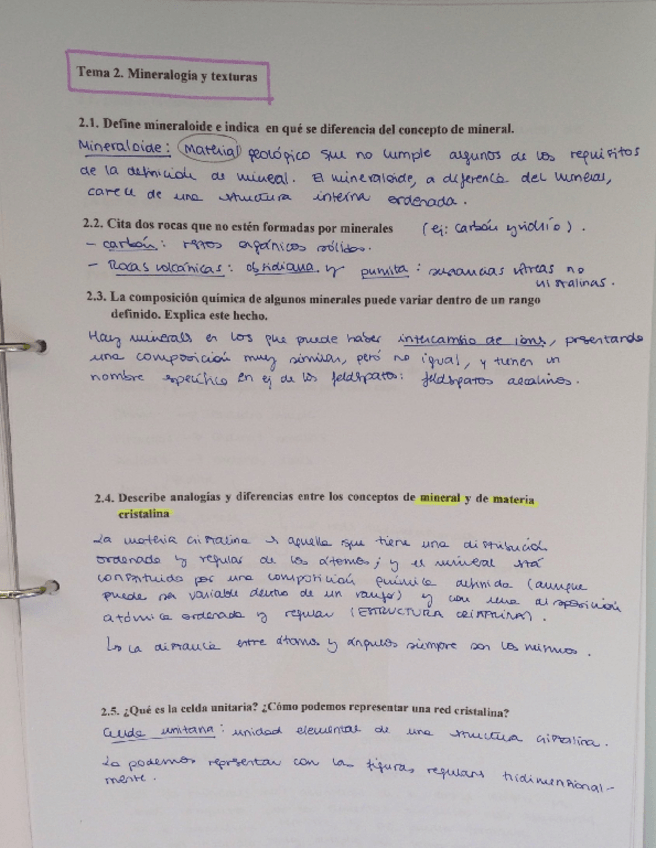 Tema 2. Mineralogía y texturas
2.1. Define mineraloide e indica en qué se diferencia del concepto de mineral.
Mineraloide: Material geológico que no cumple algunos de los requisitos
de la definición de mineral. El mineraloide, a diferencia del mineral,
carece de una estructura interna ordenada.
2.2. Cita dos rocas que no estén formadas por minerales (ej: carbón y vidrio).
- carbón: restos orgánicos sólidos.
- Rocas volcánicas: obsidiana y pumita: sustancias vítreas no
cristalinas.
2.3. La composición química de algunos minerales puede variar dentro de un rango
definido. Explica este hecho.
Hay minerales en los que puede haber intercambio de iones, presentando
una composición muy similar, pero no igual, y tienen un
nombre específico en ej de los feldspatos: feldspatos alcalinos.
2.4. Describe analogías y diferencias entre los conceptos de mineral y de materia
cristalina
La materia cristalina es aquella que tiene una distribución
ordenada y regular de los átomos; y el mineral está
constituido por una composición química definida (aunque
puede ser variable dentro de un rango) y con una disposición
atómica ordenada y regular (ESTRUCTURA CRISTALINA).
↳ La distancia entre átomos y ángulos siempre son los mismos.
2.5. ¿Qué es la celda unitaria? ¿Cómo podemos representar una red cristalina?
Celda unitaria: unidad elemental de una estructura cristalina.
La podemos representar con las figuras regulares tridimensional-
mente.